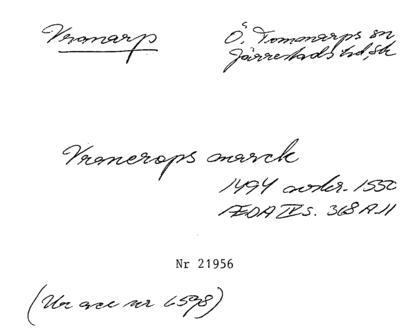 Vranarp
Ö. Tommarps sn
Järrestads hd, Sk
Vranerops marck
1494 avskr. 1550
ÆDA IV s. 368 A 11
Nr 21956
(Ur acc nr 6598)